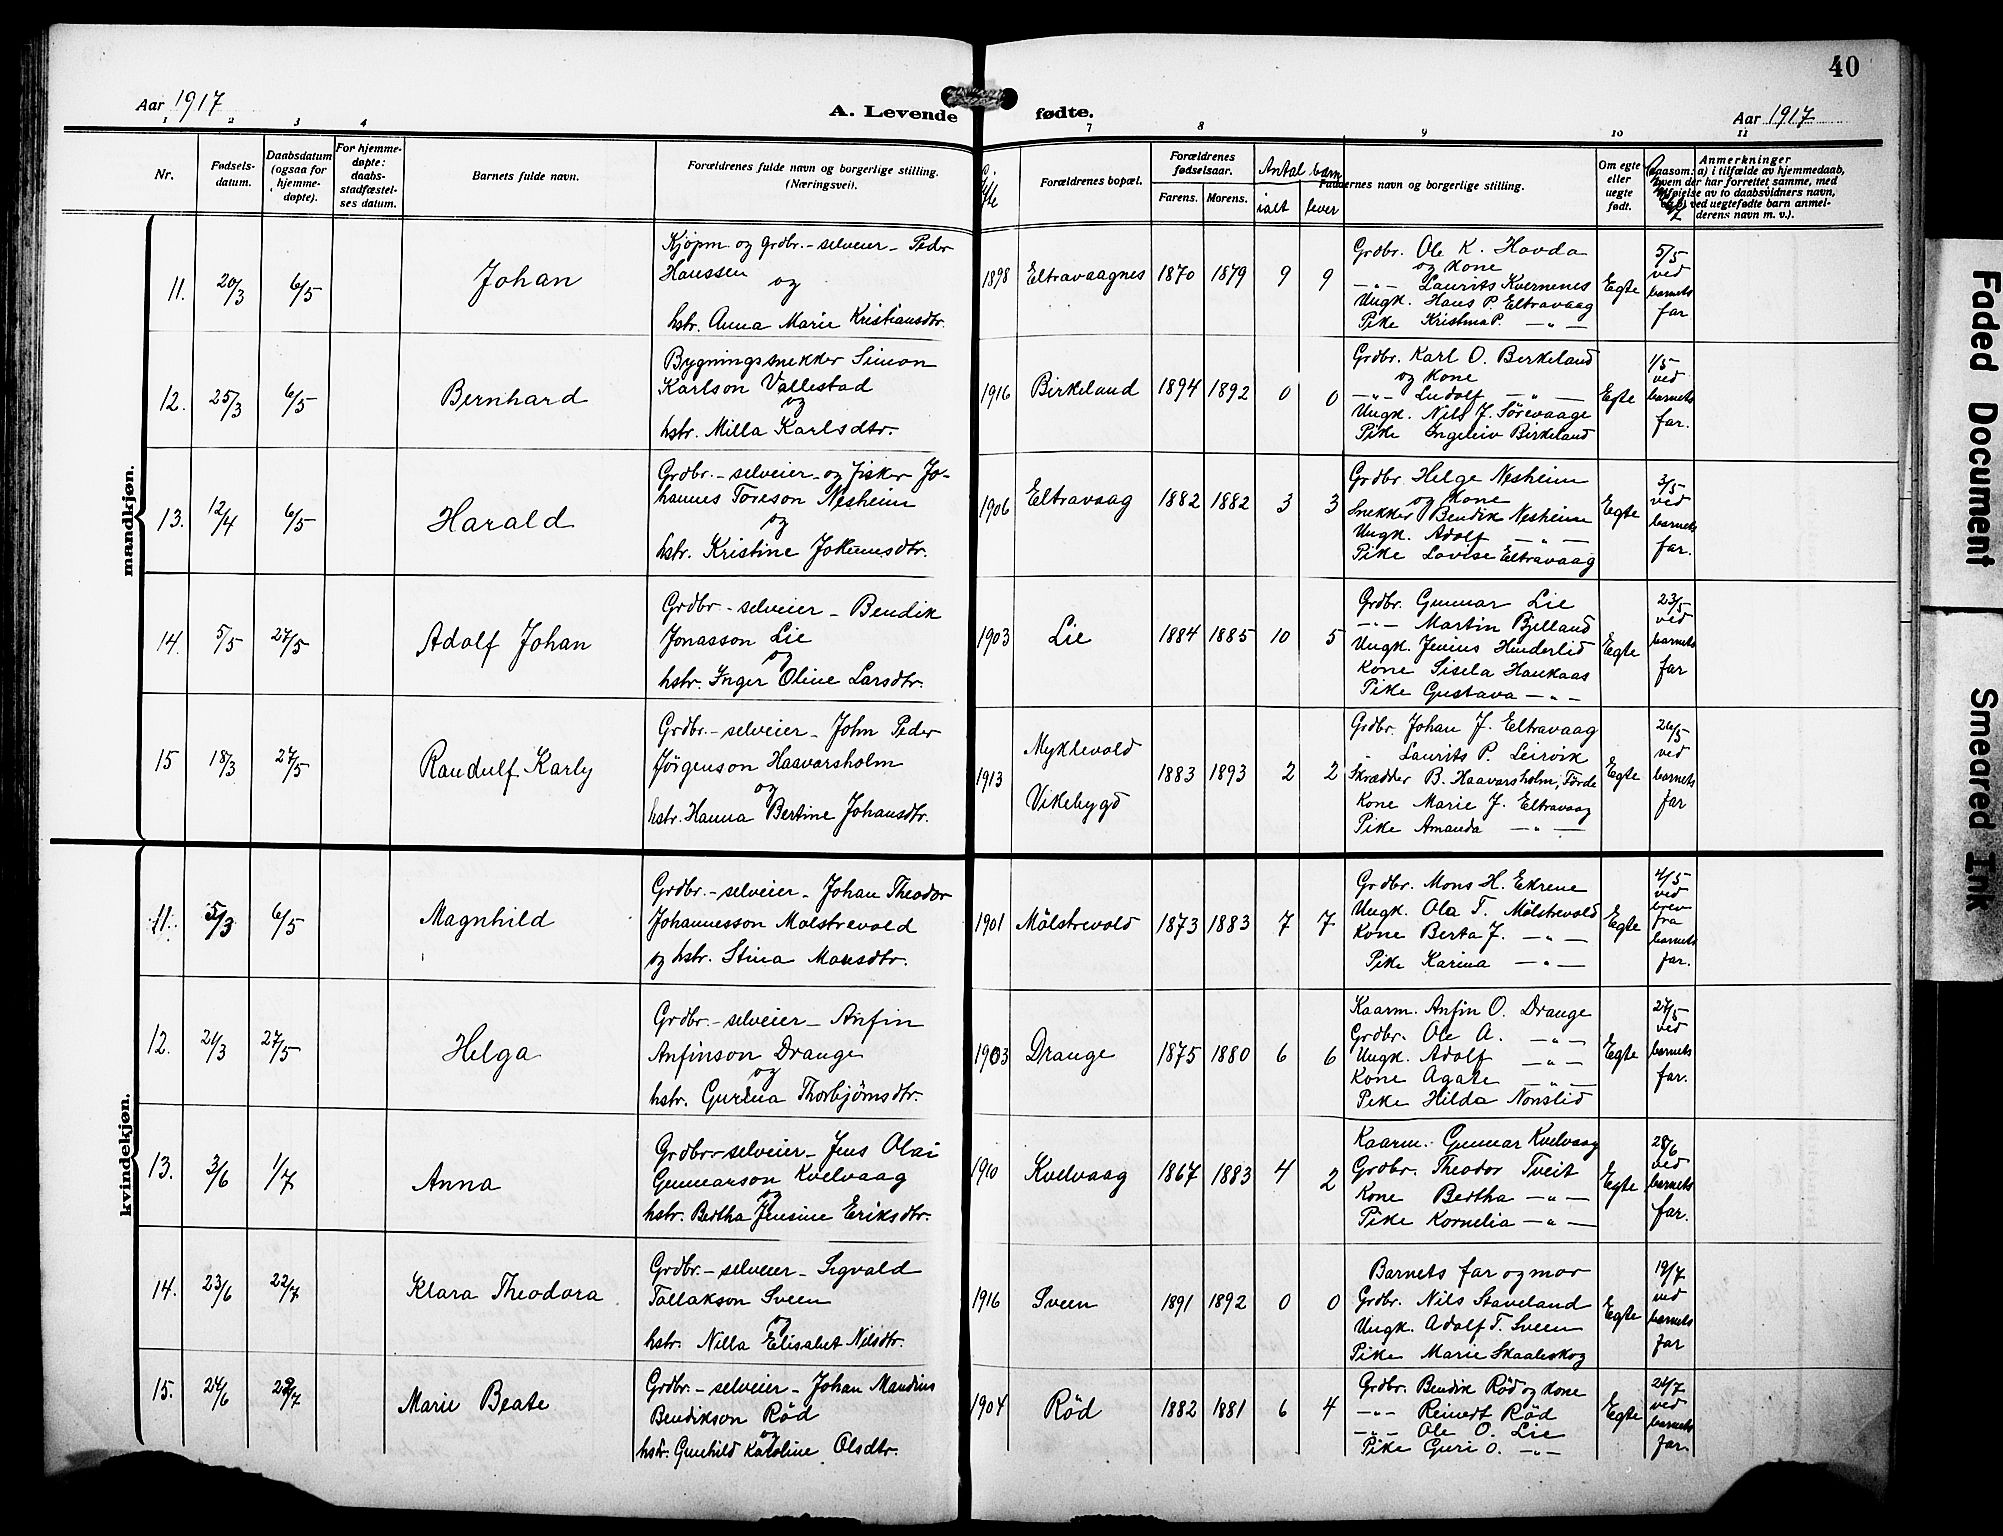 40
Aar 1917
A. Levende fødte.
Aar 1917
1 2 3 4 7 8 9 10 11
Nr.
Fødsels-
datum.
Daabsdatum
(ogsaa for
hjemme-
døpte).
For hjemme-
døpte:
daabs-
stadfæstel-
ses datum.
Barnets fulde navn.
Forældrenes fulde navn og borgerlige stilling.
(Næringsvei).
Forældrenes bopæl.
Forældrenes
fødselsaar.
Farens. Morens.
Antal barn
ialt lever
Faddernes navn og borgerlige stilling.
Om egte
eller
uegte
født.
Anmerkninger
(saasom: a) i tilfælde av hjemmedaab,
hvem der har forrettet samme, med
tilføielse av to daabsvidners navn,
b) ved uegtefødte barn anmel-
derens navn m. v.).
mandkjøn.
11. 20/3 6/5 Johan
Kjøpm og grdbr.-selveier- Peder
Hanssen
og
hstr. Anna Marie Kristiansdtr.
1898 Eltravaagnes 1870 1879 9 9
Grdbr. Ole K. Hovda
og kone
-"- Laurits Kvernenes
Ungk. Hans P. Eltravaag
Pike Kristina P. -"-
Egte
5/5
ved
barnets
far
12. 25/3 6/5 Bernhard
Bygningssnekker Simon
Karlson Vallestad
og
hstr. Milla Karlsdtr.
1916 Birkeland 1894 1892 0 0
Grdbr. Karl O. Birkeland
og kone
-"- Ludolf -"-
Ungk. Nils J. Sørevaage
Pike Ingeleiv Birkeland
Egte
1/5
ved
barnets
far.
13. 12/4 6/5 Harald
Grdbr.-selveier og fisker Jo-
hannes Toreson Nesheim
og
hstr. Kristine Johannesdtr.
1906 Eltravaag 1882 1882 3 3
Grdbr. Helge Nesheim
og kone
Snekker Bendik Nesheim
Ungk. Adolf -"-
Pike Lovise Eltravaag
Egte
3/5
ved
barnets
far.
14. 5/5 27/5 Adolf Johan
Grdbr-selveier- Bendik
Jonasson Lie
og
hstr. Inger Oline Larsdtr.
1903 Lie 1884 1885 10 5
Grdbr. Gunnar Lie
-"- Martin Bjelland
Ungk. Jenius Hinderlid
Kone Sisela Haukaas
Pike Gustava -"-
Egte
23/5
ved
barnets
far
15 18/3 27/5 Randulf Karly
Grdbr.-selveier- John Peder
Jørgenson Haavarsholm
og
hstr. Hanna Bertine Johansdtr.
1913 Myklevold
Vikebygd
1883 1893 2 2
Grdbr. Johan J. Eltravaag
Laurits P. Leirvik
Skrædder B. Haavarsholm, Førde
Kone Marie J. Eltravaag
Pike Amanda -"-
Egte
26/5
ved
barnets
far
kvindekjøn.
11. 5/3 6/5 Magnhild
Grdbr.-selveier- Johan Theodor
Johannesson Mølstrevold
og hstr. Stina Monsdtr.
1901 Mølstrevold 1873 1883 7 7
Grdbr. Mons H. Ekrene
Ungk. Ola T. Mølstrevold
Kone Berta J. -"-
Pike Karina -"-
Egte
4/5
ved
brev
fra
barnets
far.
12. 21/3 27/5 Helga
Grdbr.-selveier- Anfin
Anfinson Drange
og
hstr. Gurina Thorbjørnsdtr.
1903 Drange 1875 1880 6 6
Kaarm. Anfin O. Drange
Grdbr. Ole A. -"-
Ungk. Adolf -"-
Kone Agate -"-
Pike Hilda Nonslid
Egte
27/5
ved
barnets
far.
13. 3/6 1/7 Anna
Grdbr-selveier- Jens Olai
Gunnarson Kvelvaag
og
hstr. Bertha Jensine Eriksdtr.
1910 Kvelvaag 1867 1883 4 2
Kaarm. Gunnar Kvelvaag
Grdbr. Theodor Tveit
Kone Bertha -"-
Pike Kornelia -"-
Egte
28/6
ved
barnets
far.
14. 23/6 22/7 Klara Theodora
Grdbr.-selveier- Sigvald
Tallakson Sveen
og
hstr. Nilla Elisabet Nilsdtr.
1916 Sveen 1891 1892 0 0
Barnets far og mor
Grdbr. Nils Staveland
Ungk. Adolf T. Sveen
Pike Marie Skaaleskog
Egte
19/7
ved
barnets
far
15. 24/6 29/7 Marie Beate
Grdbr.-selveier- Johan Mandius
Bendikson Rød
og
hstr. Gunhild Karoline Olsdtr.
1904 Rød 1882 1881 6 4
Grdbr. Bendik Rød og kone
-"- Reinert Rød
-"- Ole O. Lie
Pike Guri O. -"-
Egte
24/7
ved
barnets
far.
Faded Document
Smeared Ink